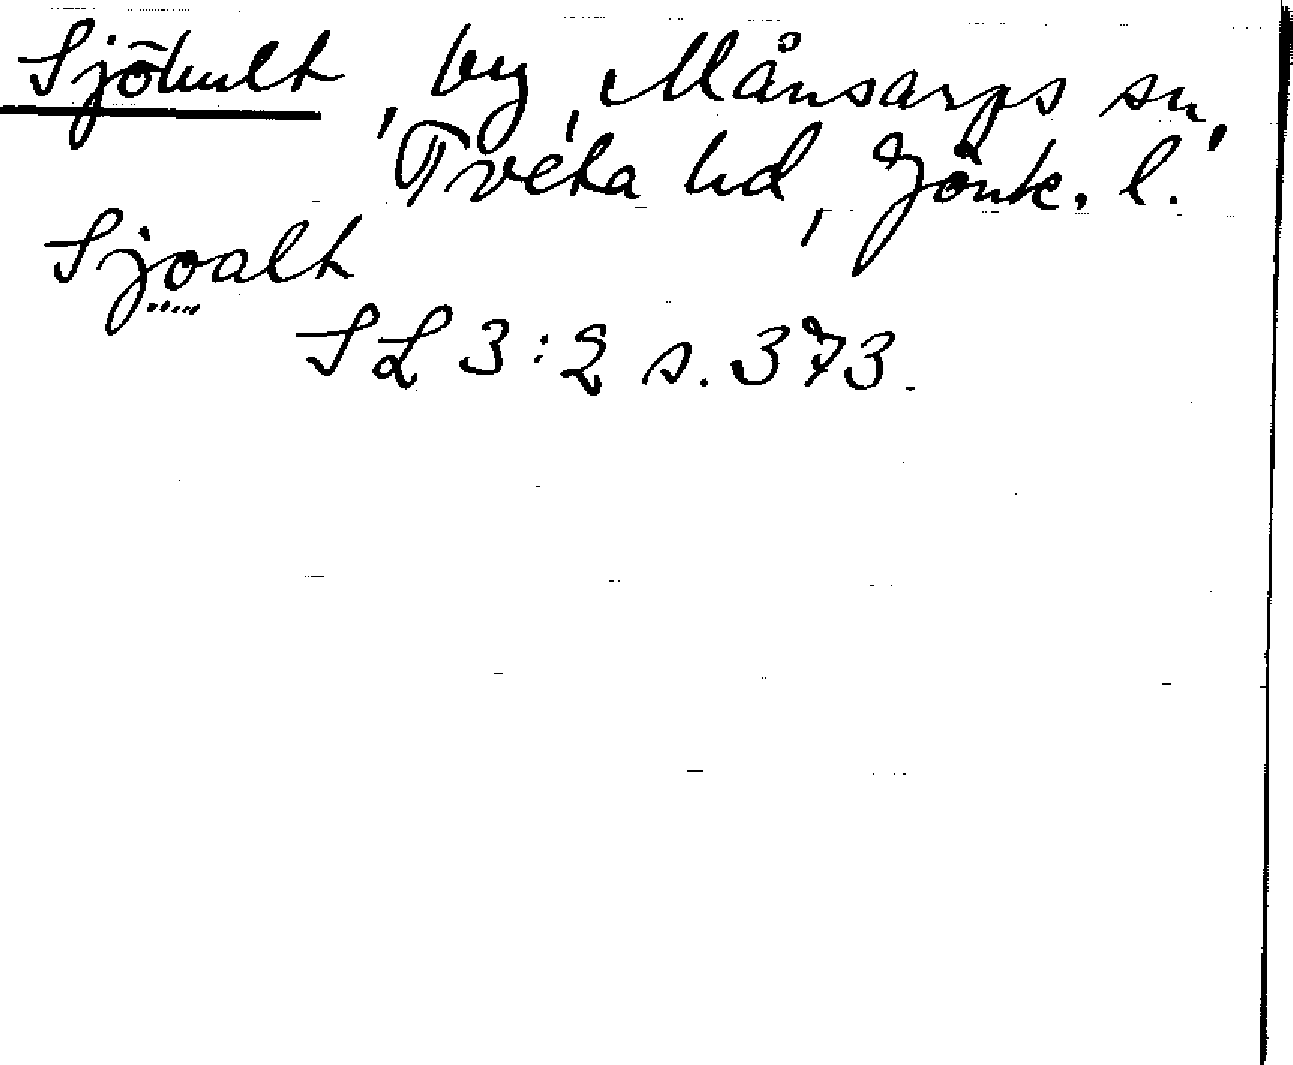 Sjöhult, by, Månsarps sn,
Tveta hd, Jönk. l.
Sjoalt
SL 3:2 s. 373.